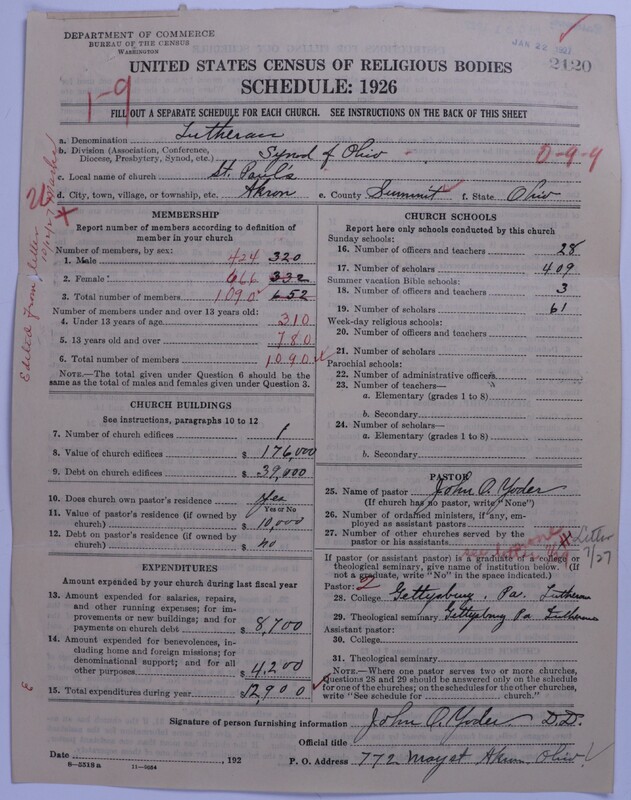 DEPARTMENT OF COMMERCE
BUREAU OF THE CENSUS
WASHINGTON
JAN 22 1927
2120
UNITED STATES CENSUS OF RELIGIOUS BODIES
SCHEDULE: 1926
1-9
FILL OUT A SEPARATE SCHEDULE FOR EACH CHURCH. SEE INSTRUCTIONS ON THE BACK OF THIS SHEET
a. Denomination Lutheran
b. Division (Association, Conference, Diocese, Presbytery, Synod, etc.) Synod of Ohio 0-9-9
c. Local name of church St. Paul's
d. City, town, village, or township, etc. Akron e. County Summit f. State Ohio
Edited from letter
MEMBERSHIP
Report number of members according to definition of
member in your church
Number of members, by sex:
1. Male 424 320
2. Female 666 332
3. Total number of members 1090 652
Number of members under and over 13 years old:
4. Under 13 years of age 310
5. 13 years old and over 780
6. Total number of members 1090
NOTE.—The total given under Question 6 should be
same as the total of males and females given under Question 3.
CHURCH BUILDINGS
See instructions, paragraphs 10 to 12
7. Number of church edifices 1
8. Value of church edifices $ 176,000
9. Debt on church edifices $ 39,000
10. Does church own pastor's residence Yes
Yes or No
11. Value of pastor's residence (if owned by
church) $ 10,000
12. Debt on pastor's residence (if owned by
church) $ no
EXPENDITURES
Amount expended by your church during last fiscal year
13. Amount expended for salaries, repairs,
and other running expenses; for im-
provements or new buildings; and for
payments on church debt $ 8,700
14. Amount expended for benevolences, in-
cluding home and foreign missions; for
denominational support; and for all
other purposes $ 4,200
15. Total expenditures during year $ 12,900
CHURCH SCHOOLS
Report here only schools conducted by this church
Sunday schools:
16. Number of officers and teachers 28
17. Number of scholars 409
Summer vacation Bible schools:
18. Number of officers and teachers 3
19. Number of scholars 61
Week-day religious schools:
20. Number of officers and teachers
21. Number of scholars
Parochial schools:
22. Number of administrative officers
23. Number of teachers—
a. Elementary (grades 1 to 8)
b. Secondary
24. Number of scholars—
a. Elementary (grades 1 to 8)
b. Secondary
PASTOR
25. Name of pastor John A. Yoder
(If church has no pastor, write "None")
26. Number of ordained ministers, if any, em-
ployed as assistant pastors
27. Number of other churches served by the
pastor or his assistants none
x Letter
7/27
If pastor (or assistant pastor) is a graduate of a college or
theological seminary, give name of institution below. (If
not a graduate, write "No" in the space indicated.)
Pastor: 2
28. College Gettysburg, Pa. Lutheran
29. Theological seminary Gettysburg Pa Lutheran
Assistant pastor:
30. College
31. Theological seminary
NOTE.—Where one pastor serves two or more churches,
Questions 28 and 29 should be answered only on the schedule
for one of the churches; on the schedules for the other churches,
write "See schedule for church."
Signature of person furnishing information John A. Yoder D.D.
Official title
Date , 192 P. O. Address 772 May st Akron Ohio
8-5518 a 11-9084